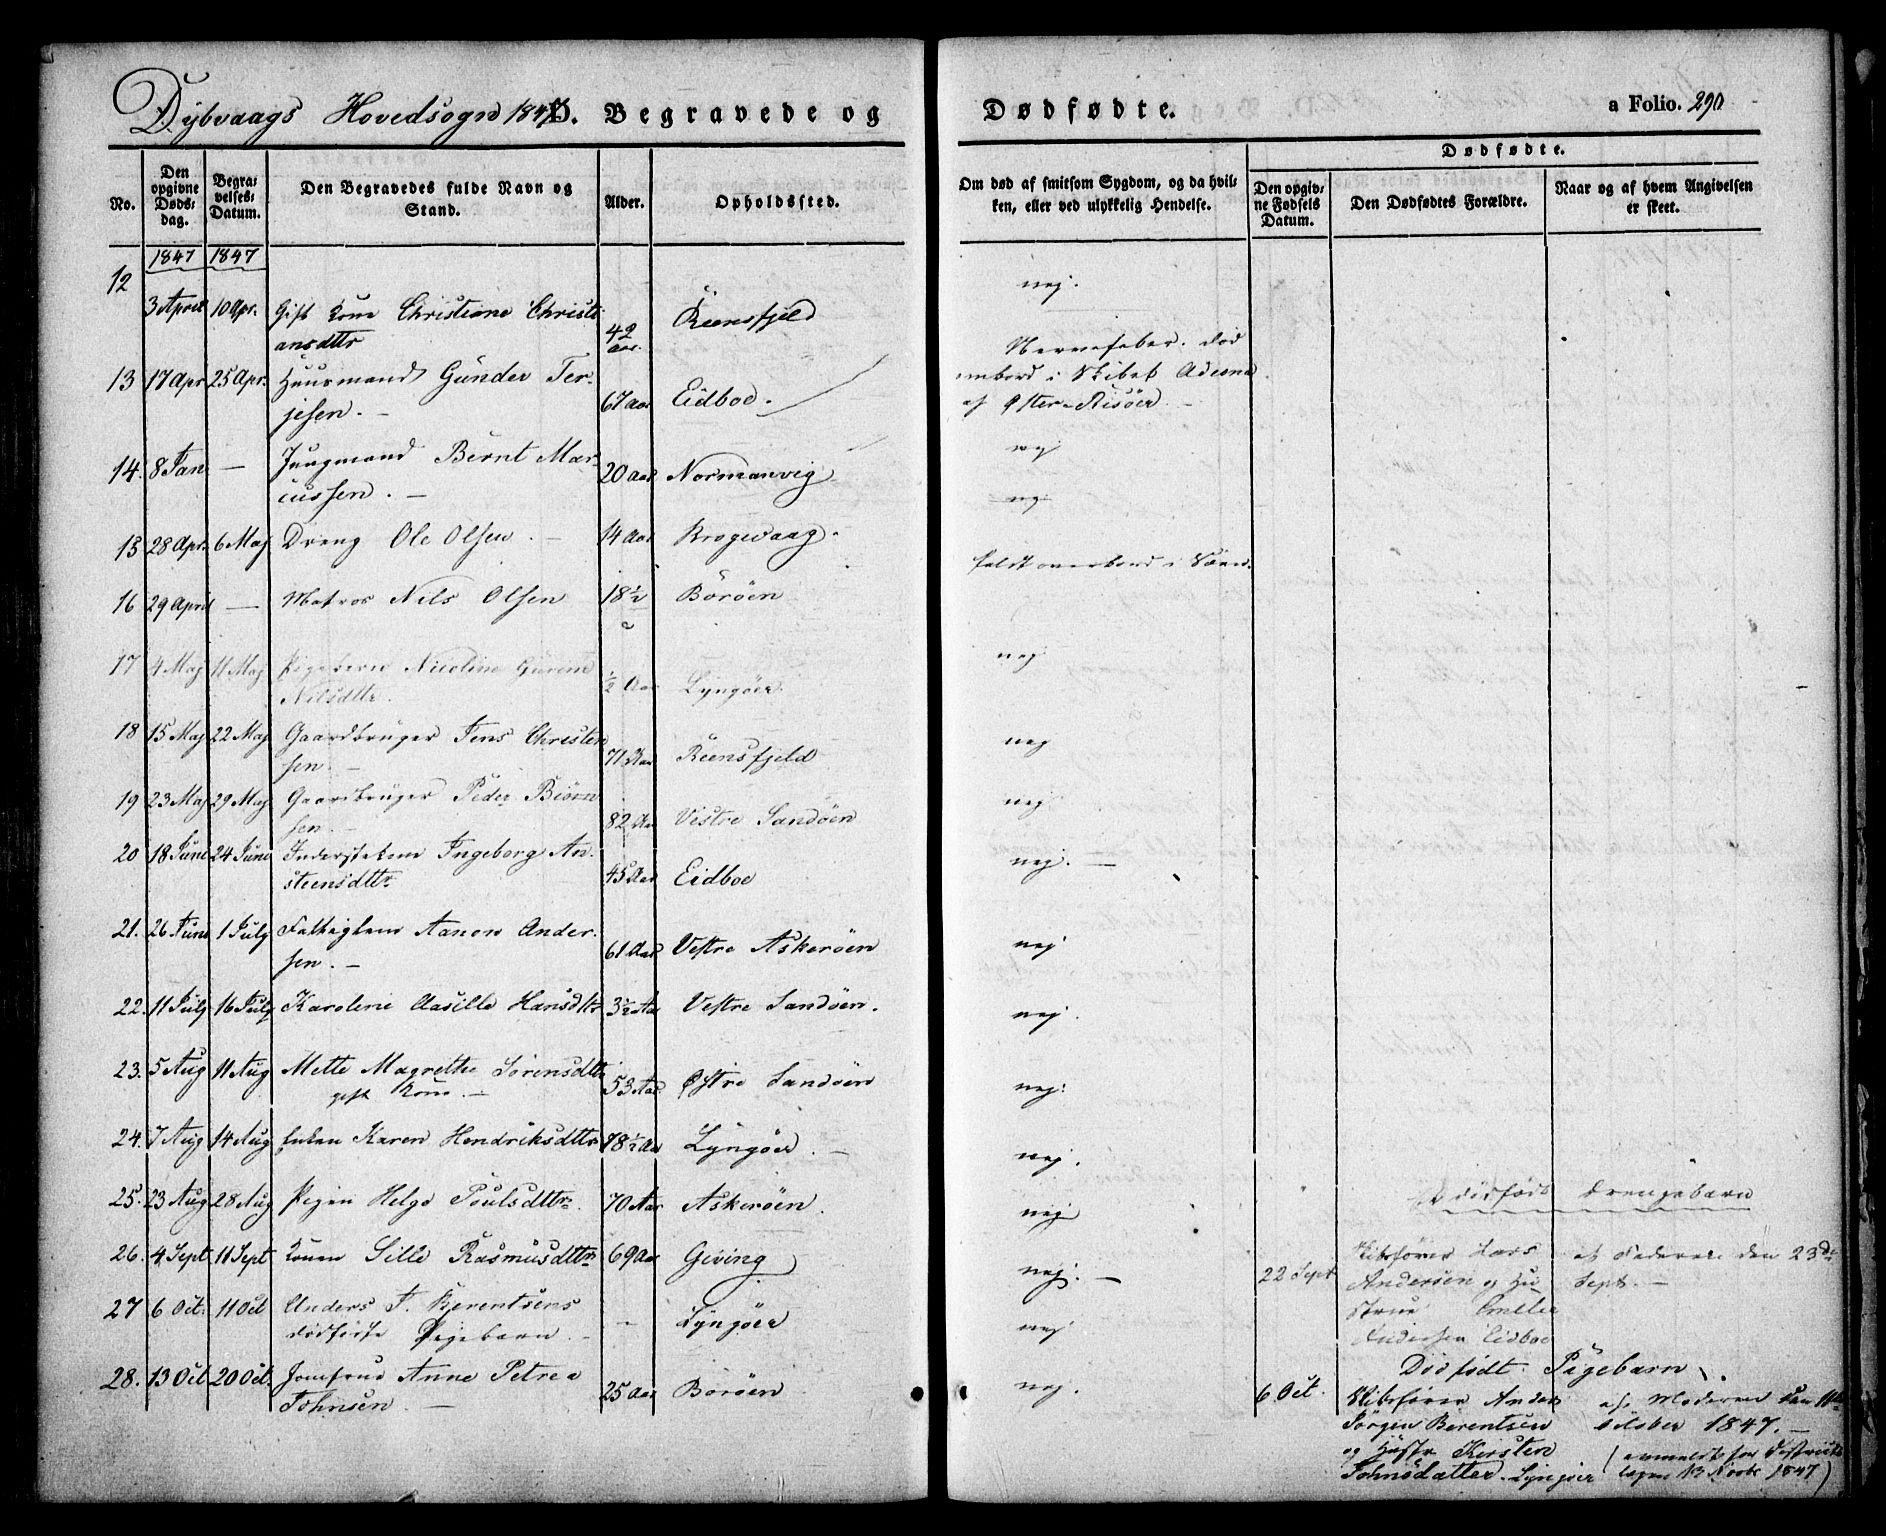 Dybvaags Hovedsogn 1847 D. Begravede og Dødfødte. a Folio. 290
No.
Den opgivne Døds-dag.
Begra-velses-Datum.
Den Begravedes fulde Navn og Stand.
Alder.
Opholdssted.
Om død af smitsom Sygdom, og da hvil-
ken, eller ved ulykkelig Hendelse.
Dødfødte.
Den opgiv-ne Fødsels Datum.
Den Dødfødtes Forældre.
Naar og af hvem Angivelsen er skeet.
1847 1847
12 3 April 10 Apr. Gift Kone Christiane Christi
ansdttr 42 aar. Reensfjeld nej.
13 17 Apr 25 Apr. Huusmand Gunder Ter-
jesen. – 67 aar Eidboe.
Nervefeber. død
ombord i Skibet
af Øster-Risöer. –
14. 8 Jan – Jungmand Bernt Mar-
cussen. – 20 Aar Normanvig
nej
nej
15 28 Apr. 6 Maj Dreng Ole Olsen. – 14 Aar Krogevaag.
faldt overbord i Søen.
16 29 April – Matros Nils Olsen 18½ Boröen
17 4 Maj 11 Maj Pigebarn Nicoline Gurine
Nilsdttr. ½ Aar Lyngöer. nej
18 15 Maj 22 Maj Gaardbruger Jens Christen
sen. – 71 Aar Reensfjeld nej
19 23 Maj 29 Maj Gaardbruger Peder Biörn
sen. – 82 Aar Vestre Sandöen nej
20 18 Juni 24 Juni Inderstekone Ingeborg An-
steensdttr 45 Aar Eidboe nej. –
21. 26 Juni 1 July Fattiglem Aanon Ander-
sen. – 61 Aar Vestre Askeröen nej
22. 11 July 16 July Karoline Aasille Hansdttr 3½ Aar Vestre Sandöen. nej.
23. 5 Aug 11 Aug Mette Magrethe Sörensdttr
gift Kone. – 53 Aar Østre Sandöen nej.
24. 7 Aug 14 Aug Enken Karen Hendriksdttr 78½ Aar Lyngöer. – nej.
25. 23 Aug 28 Aug Pigen Helge Poulsdttr. 70 Aar Askeröen. nej
26. 4 Sept 11 Sept Konen Sille Rasmusdttr 69 Aar Geving nej. –
27 6 Oct. 11 Oct Anders J. Berentsens
dødfødte Pigebarn. – – Lyngöer nej
28. 13 Oct 20 Oct. Jomfrue Anne Petrea
Johnsen. – 25 Aar Boröen nej.
dödfødt Drengebarn
22 Sept Skibsfører Lars
Andersen og Hu-
strue Emelie
Andersen Eidboe
af Faderen den 23de
Sept. –
Dödfødt Pigebarn
6 Oct. Skibsfører Anders
Jörgen Berentsen
og Hustr Kirsten
Johnsdatter. Lyngöer
af Moderen den 11te
October 1847. –
(anmeldt for Districts
lægen 13 Novbr 1847)